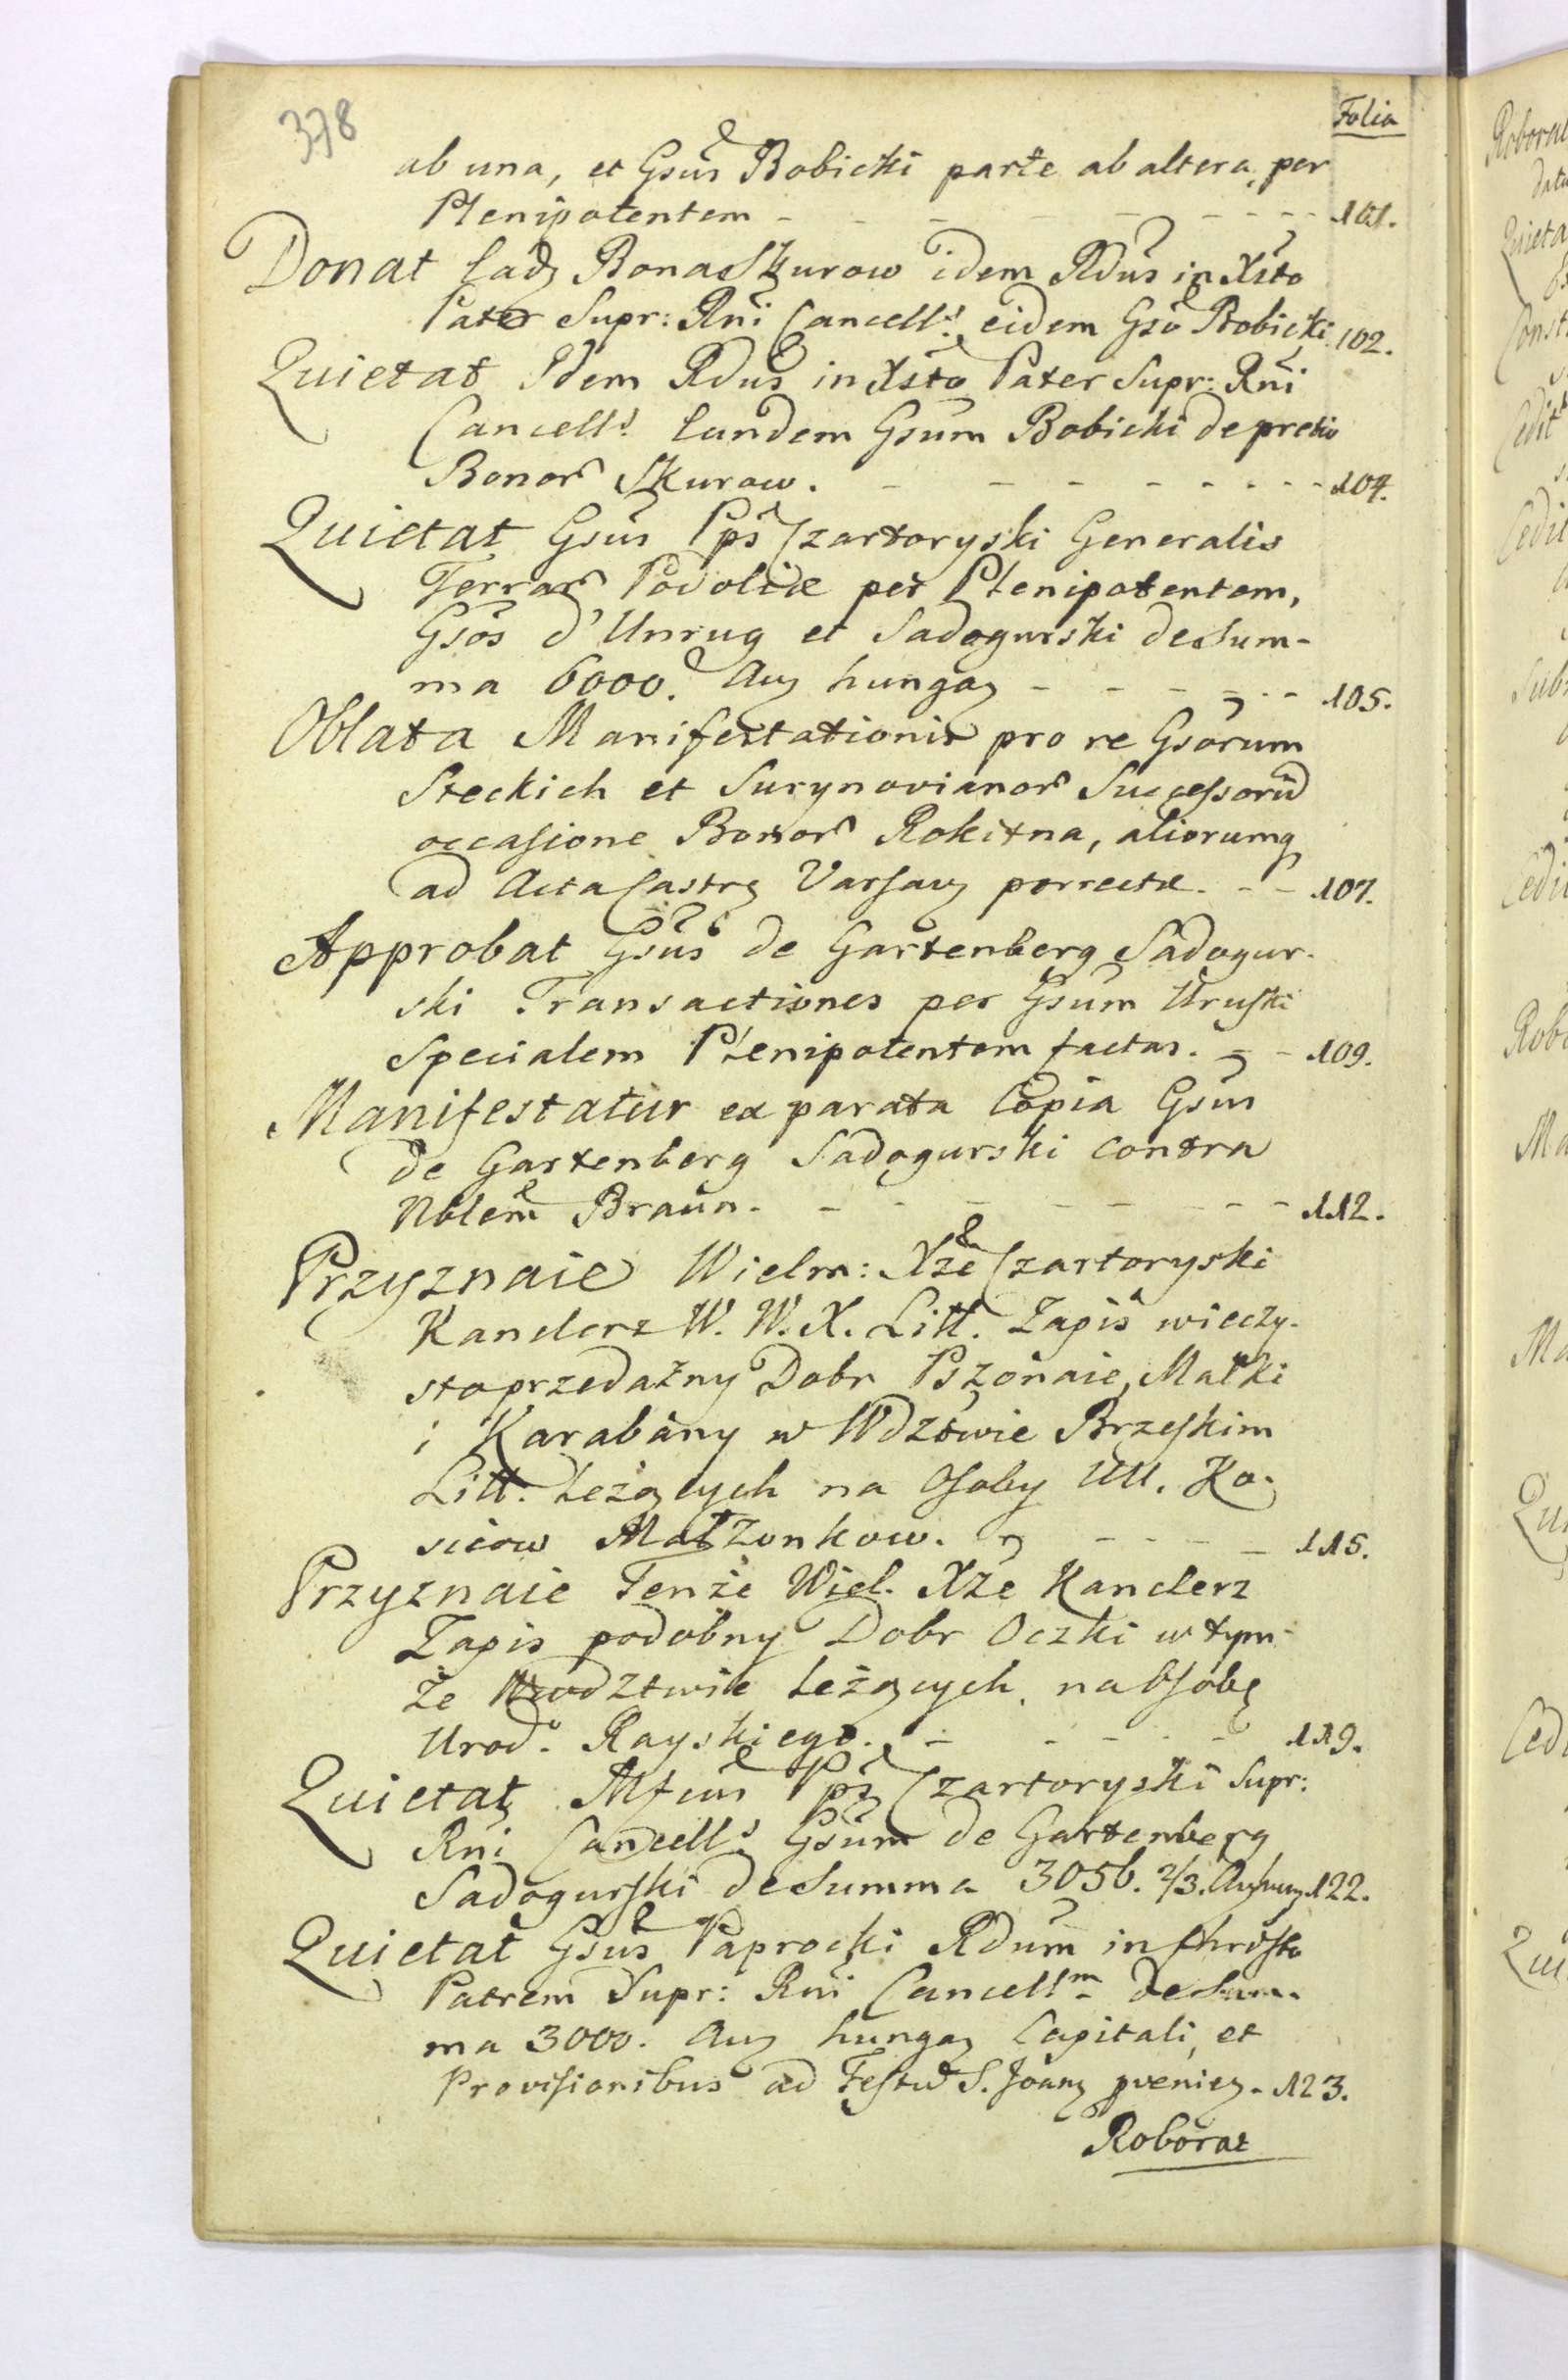 378
Folia
ab una, et Gsūs Bobicki parte ab altera, per
Plenipotentem - - - - - - - - 101.
Donat Bona Skurow idem Rdūs in Xsto
Pater Supr: Rni Cancells. eidem Gsō Bobicki 102.
Quietat Idem Rdūs in Xsto Pater Supr: Rni
Cancells. Eundem Gsum Bobicki de pretio
Bonor Skurow. - - - - - - - 104.
Quietat Gsūs Pps Czartoryski Generalis
Terrar Podoliæ per Plenipotentem,
Gsōs d'Unrug et Sadogurski de Sum-
ma 6000. Auɜ hungaɜ - - - - - - 105.
Oblata Manifestationis pro re Gsōrum
Steckich et Surynovianor Successorū
occasione Bonor Rokitna, aliorumq
ad Acta Castrɜ Varsavɜ porrectæ. - - 107.
Approbat Gsūs de Gartenberg Sadogur-
ski Transactiones per Gsūm Uruski
Specialem Plenipotentem factas. - - 109.
Manifestatur ex parata Copia Gsūs
de Gartenberg Sadogurski contra
Nblem Braun. - - - - - - - 112.
Przyznaie Wielm: Xże Czartoryski
Kanclerz W. W. X. Litt. Zapis wieczy-
stoprzedażny Dobr Pszonaie, Małki
i Karabany w Wdztwie Brzeskim
Litt. Leżących na Osoby UU. Ko-
sicow Małżonkow. - - - - - 115.
Przyznaie Tenże Wiel. Xże Kanclerz
Zapis podobny Dobr Oczki w tym-
że Wwodztwie leżących, na Osobę
Urod. Rayskiego. - - - - - 119.
Quietat Mfcus Pps Czartoryski Supr:
Rni Cancells. Gsūm de Gartenberg
Sadogurski de Summa 3056. 2/3. Auɜ hunɜ 122.
Quietat Gsūs Paprocki Rdūm in Christo
Patrem Supr: Rni Cancellm de Sum-
ma 3000. Auɜ hungaɜ Capitali, et
Provisionibus ad Festū S. Joanɜ pveniɜ. 123.
Roborat